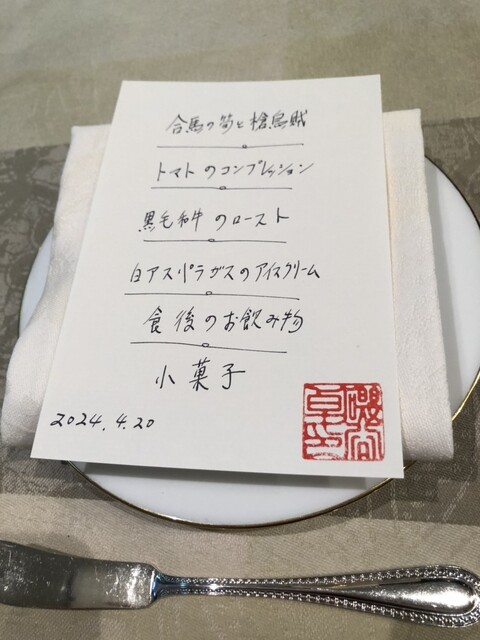 合馬の筍と槍烏賊
トマトのコンプレッション
黒毛和牛のロースト
白アスパラガスのアイスクリーム
食後のお飲み物
小菓子
2024.4.20